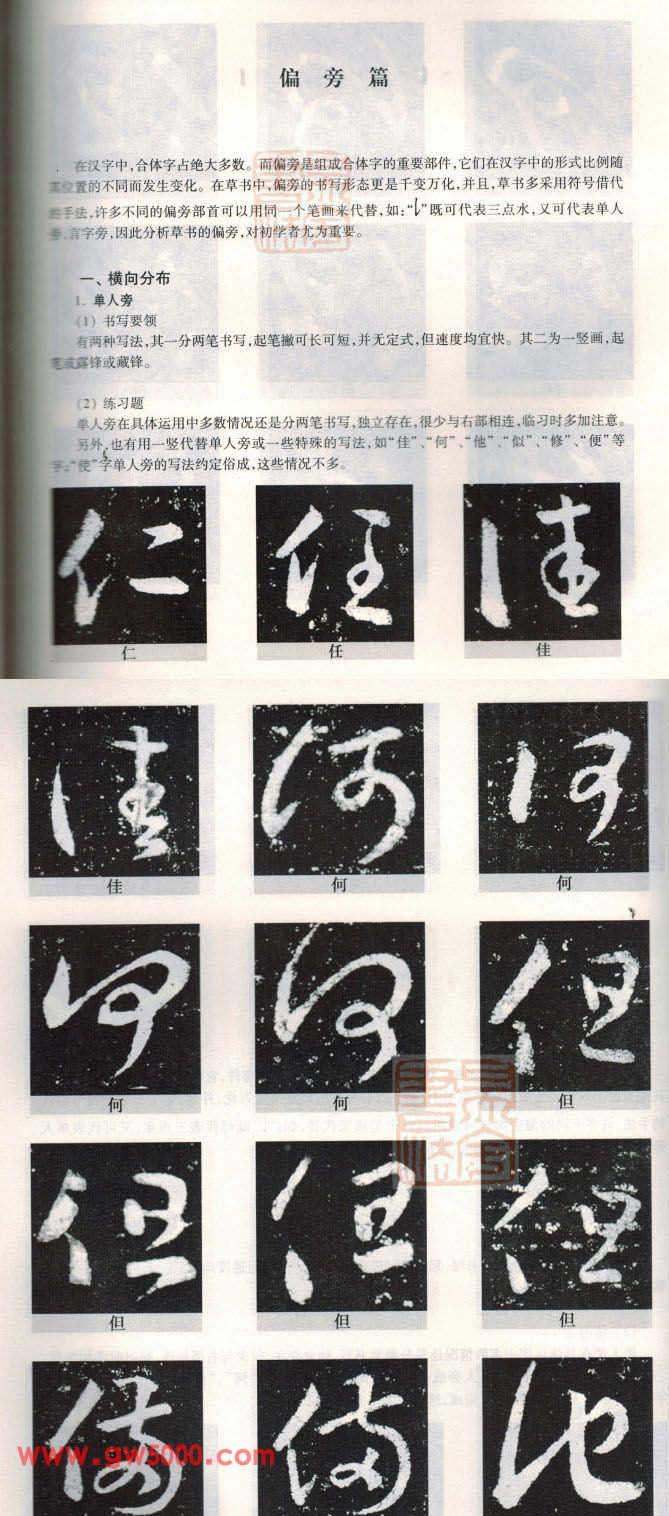 偏旁篇
在汉字中,合体字占绝大多数。而偏旁是组成合体字的重要部件,它们在汉字中的形式比例随
其位置的不同而发生变化。在草书中,偏旁的书写形态更是千变万化,并且,草书多采用符号借代
的手法,许多不同的偏旁部首可以用同一个笔画来代替,如:“ ”既可代表三点水,又可代表单人
旁、言字旁,因此分析草书的偏旁,对初学者尤为重要。
一、横向分布
1. 单人旁
(1) 书写要领
有两种写法,其一分两笔书写,起笔撇可长可短,并无定式,但速度均宜快。其二为一竖画,起
笔或露锋或藏锋。
(2) 练习题
单人旁在具体运用中多数情况还是分两笔书写,独立存在,很少与右部相连,临习时多加注意。
另外,也有用一竖代替单人旁或一些特殊的写法,如“佳”、“何”、“他”、“似”、“修”、“便”等
字;“使”字单人旁的写法约定俗成,这些情况不多。
仁 任 佳
仁 任 佳
佳 何 何
佳 何 何
何 何 但
何 何 但
但 但 但
但 但 但
他
www.gw5000.com